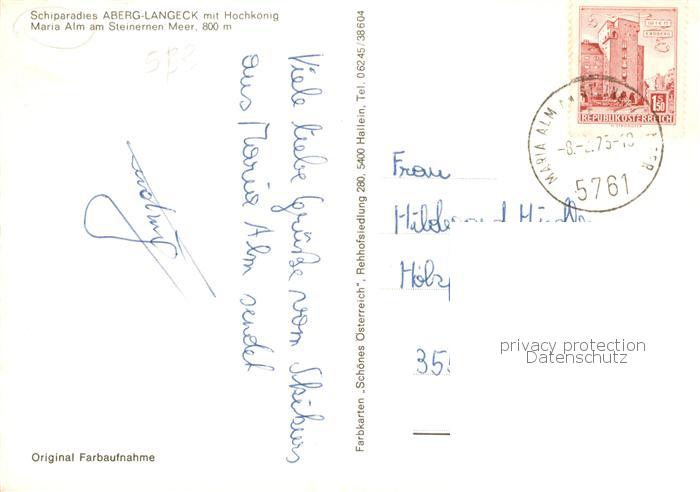 Schiparadies ABERG-LANGECK mit Hochkönig
Maria Alm am Steinernen Meer, 800 m
Viele liebe Grüße vom Skikurs
aus Maria Alm sendet
Original Farbaufnahme
Farbkarten „Schönes Österreich", Rehhofsiedlung 280, 5400 Hallein, Tel. 06245/38604
WIEN
ERDBERG
1.50
REPUBLIK ÖSTERREICH
MARIA ALM
5761
Frau
355
privacy protection
Datenschutz